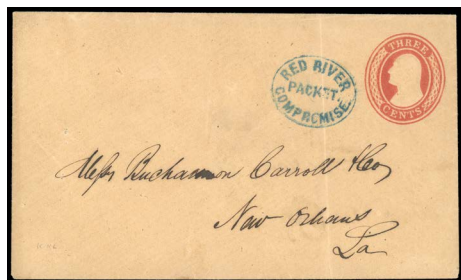 RED RIVER
PACKET.
COMPROMISE.
THREE
CENTS
Messrs Buchannon Carroll & Co
New Orleans
La